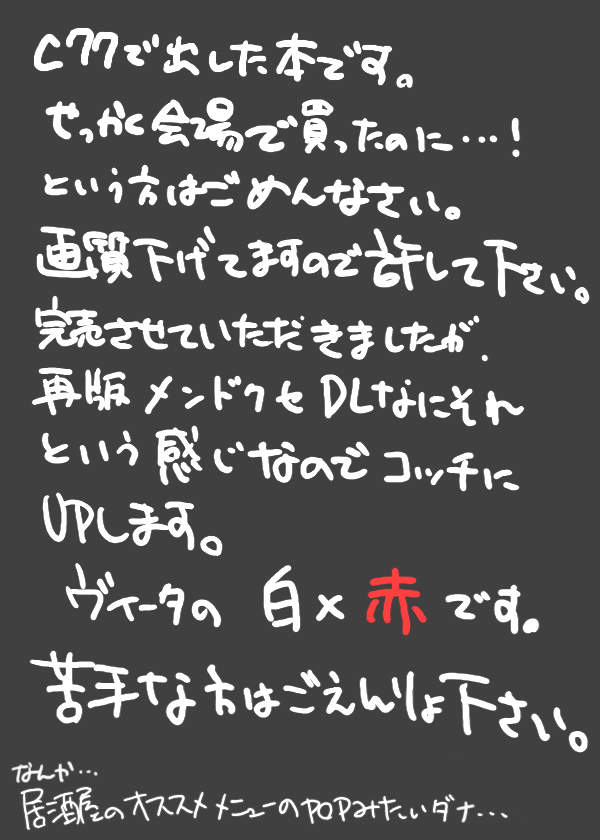 C77で出した本です。
せっかく会場で買ったのに…!
という方はごめんなさい。
画質下げてますので許して下さい。
完売させていただきましたが、
再版メンドクセDLなにそれ
という感じなのでコッチに
UPします。
ヴィータの 白×赤です。
苦手な方はごえんりょ下さい。
なんか…
居酒屋のオススメメニューのPOPみたいダナ…